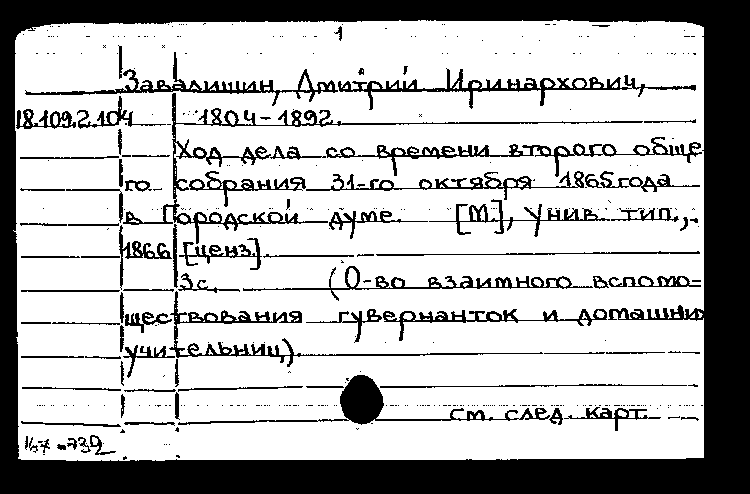 1
Завалишин, Дмитрий Иринархович,
18.109.2.104 1804-1892.
Ход дела со времени второго обще
го собрания 31-го октября 1865 года
в Городской думе. [М.], Унив. тип.,
1866 [ценз].
3с. (О-во взаимного вспомо=
ществования гувернанток и домашних
учительниц).
см. след. карт.